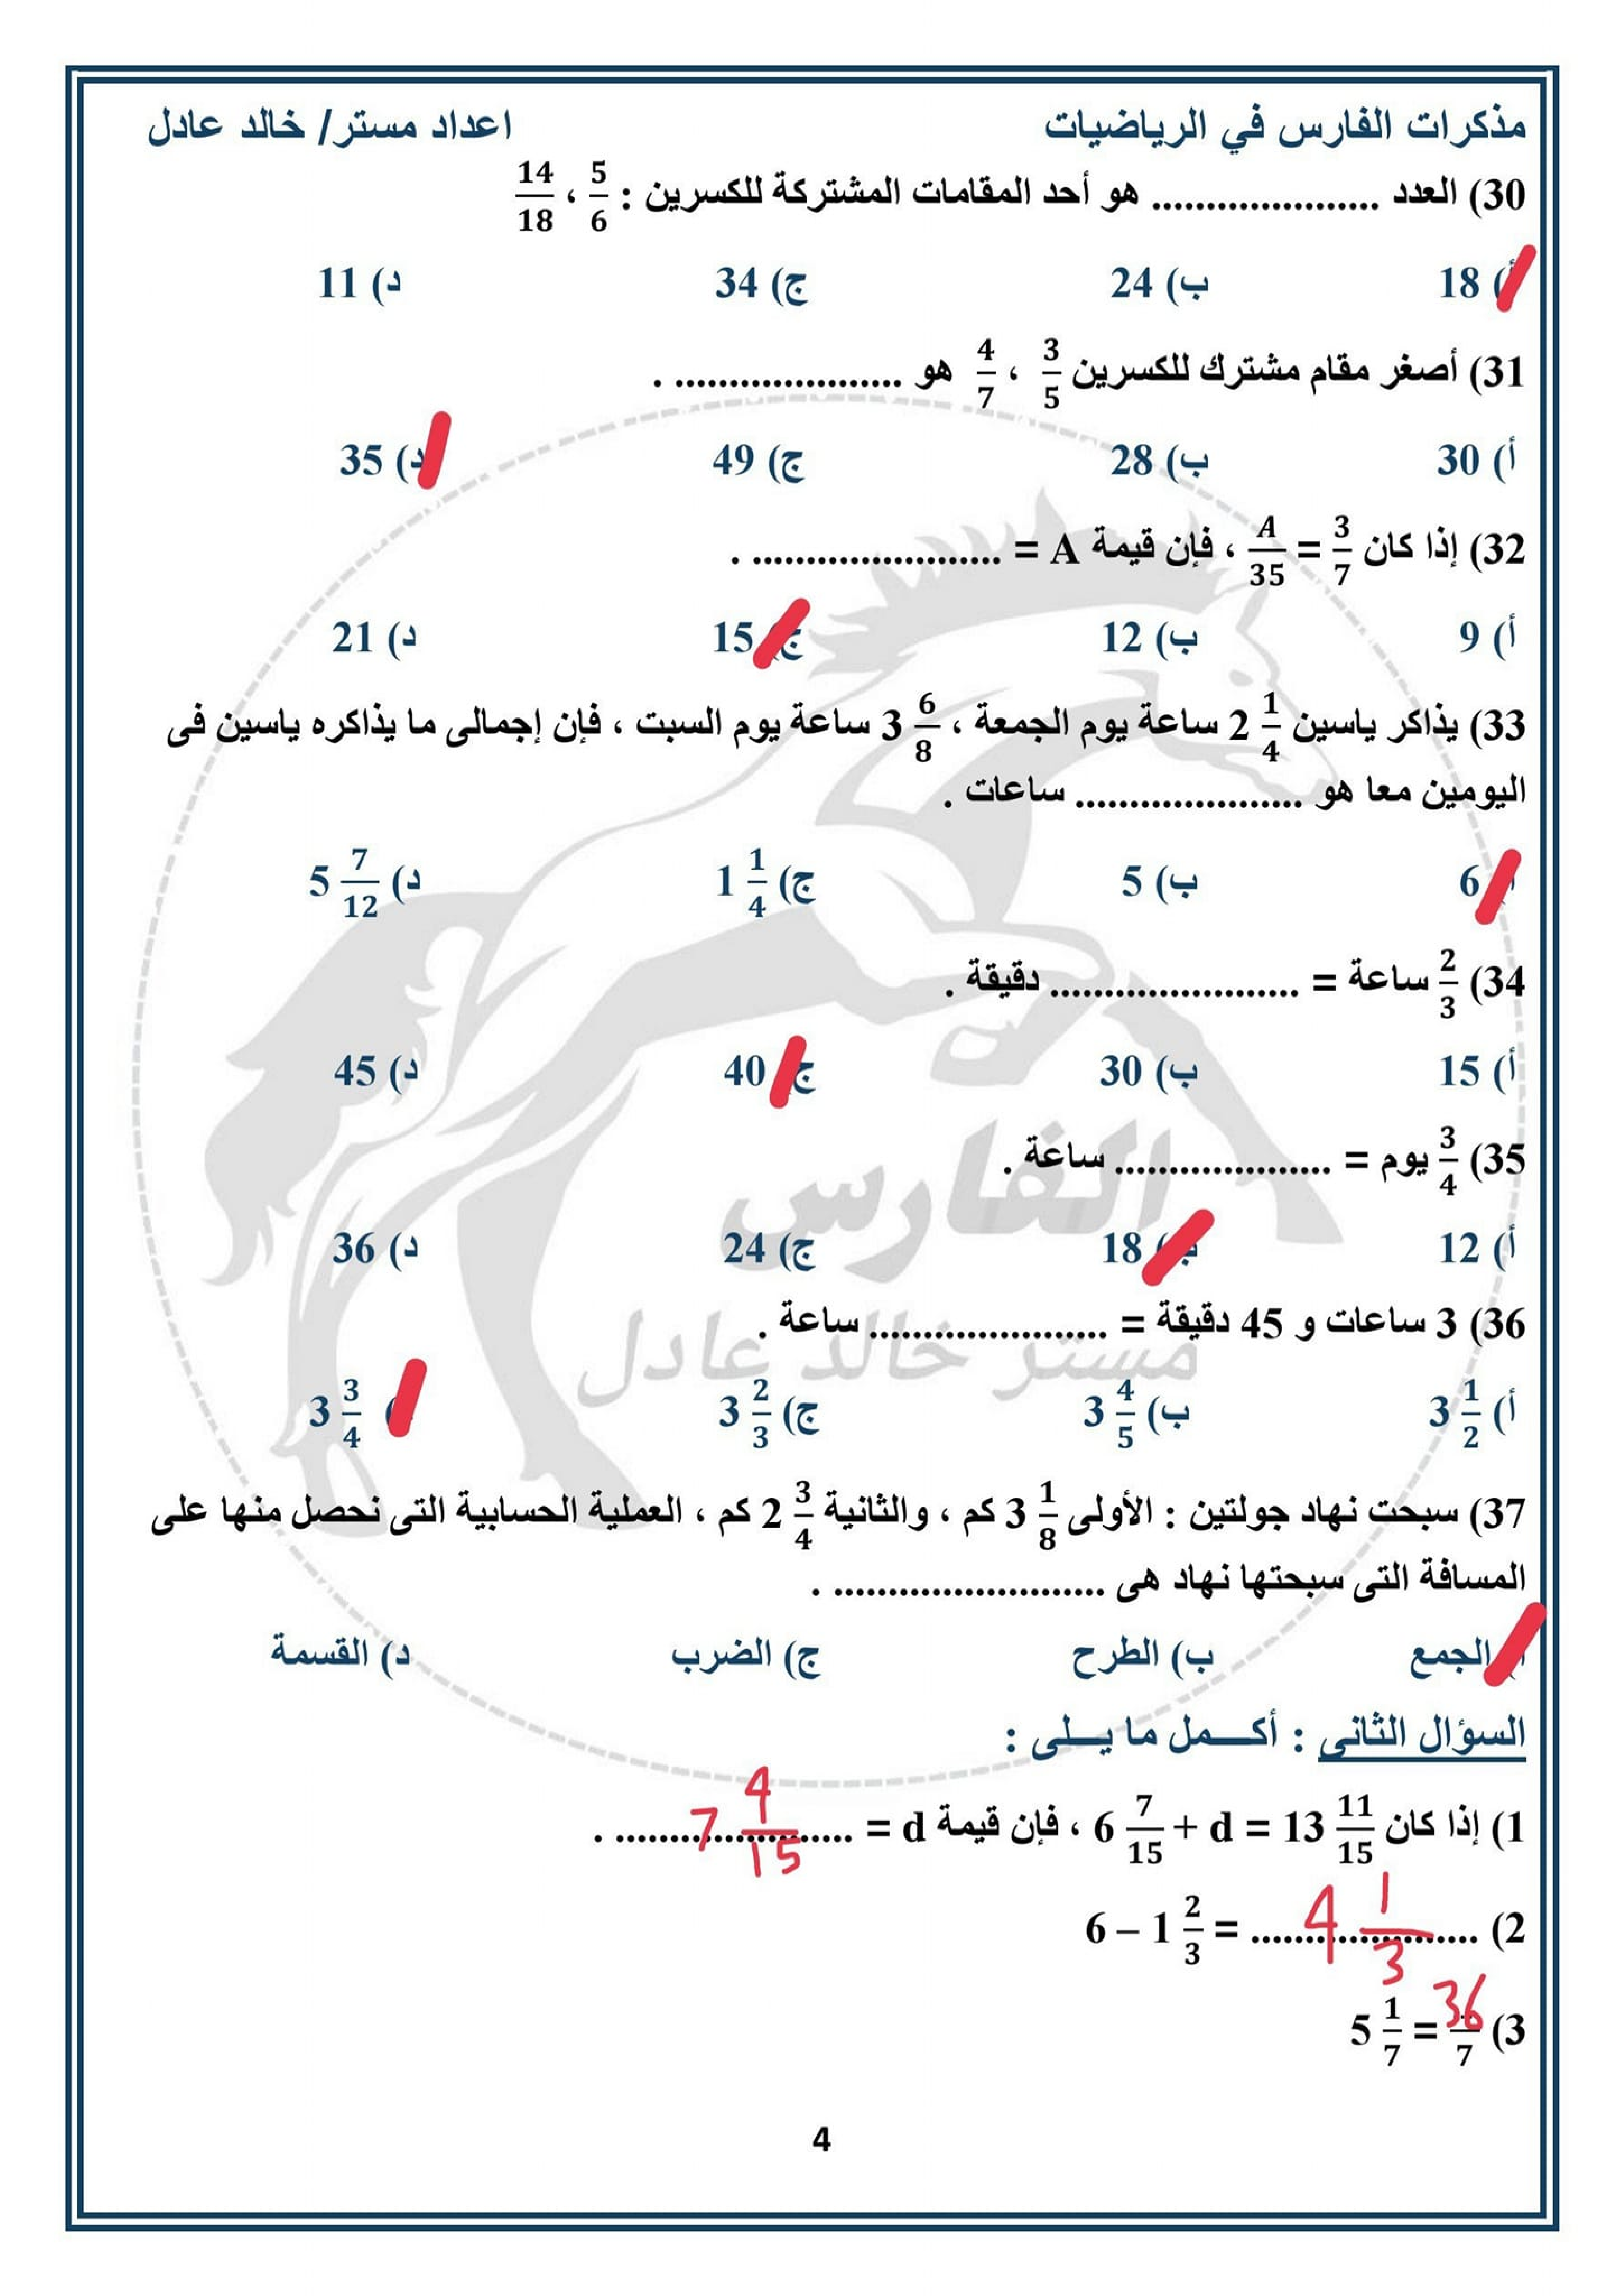 مذكرات الفارس في الرياضيات اعداد مستر/ خالد عادل
30) العدد ..................... هو أحد المقامات المشتركة للكسرين : 5/6 ، 14/18
أ) 18 ب) 24 ج) 34 د) 11
31) أصغر مقام مشترك للكسرين 3/5 ، 4/7 هو ..................... .
أ) 30 ب) 28 ج) 49 د) 35
32) إذا كان 3/7 = A/35 ، فإن قيمة A = ....................... .
أ) 9 ب) 12 ج) 15 د) 21
33) يذاكر ياسين 2 1/4 ساعة يوم الجمعة ، 3 6/8 ساعة يوم السبت ، فإن إجمالى ما يذاكره ياسين فى
اليومين معا هو ..................... ساعات .
أ) 6 ب) 5 ج) 1 1/4 د) 5 7/12
34) 2/3 ساعة = ....................... دقيقة .
أ) 15 ب) 30 ج) 40 د) 45
35) 3/4 يوم = .................... ساعة .
أ) 12 ب) 18 ج) 24 د) 36
36) 3 ساعات و 45 دقيقة = ...................... ساعة .
أ) 3 1/2 ب) 3 4/5 ج) 3 2/3 د) 3 3/4
37) سبحت نهاد جولتين : الأولى 3 1/8 كم ، والثانية 2 3/4 كم ، العملية الحسابية التى نحصل منها على
المسافة التى سبحتها نهاد هى ......................... .
أ) الجمع ب) الطرح ج) الضرب د) القسمة
السؤال الثانى : أكـــمل ما يـــلى :
1) إذا كان 6 7/15 + d = 13 11/15 ، فإن قيمة d = 7 4/15 .
2) 6 – 1 2/3 = 4 1/3
3) 5 1/7 = 36/7
الفارس
مستر خالد عادل
4